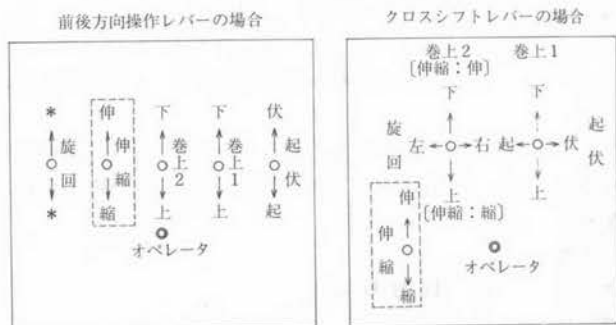 前後方向操作レバーの場合
* 伸 下 下 伏
旋回 伸縮 巻上2 巻上1 起伏
* 縮 上 上 起
オペレータ
クロスシフトレバーの場合
巻上2 巻上1
〔伸縮：伸〕
下 下
旋回 左 右 起 伏 起伏
上 上
〔伸縮：縮〕
伸
伸縮
縮
オペレータ